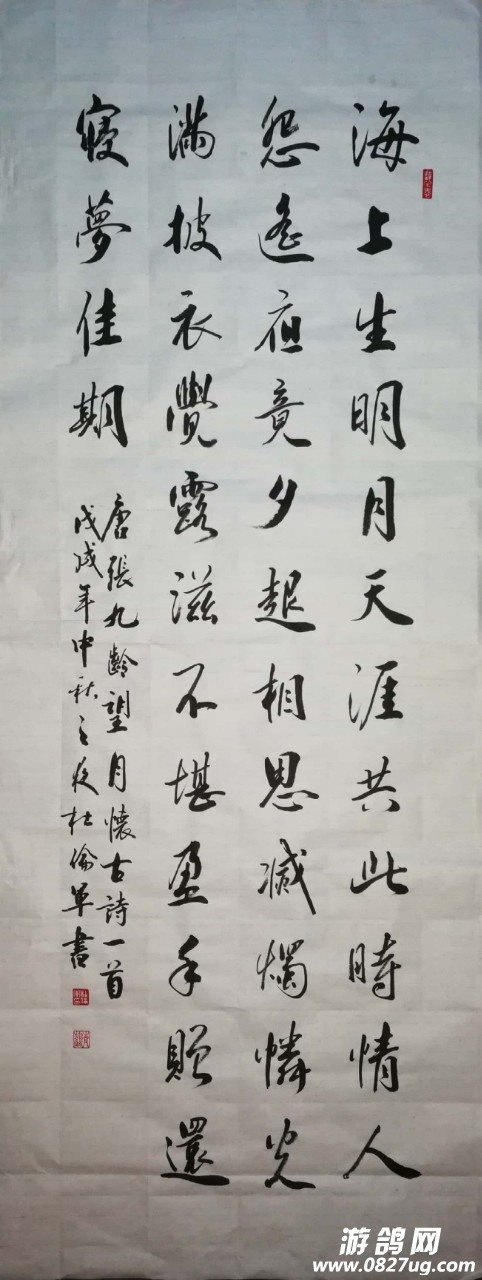 海上生明月天涯共此時情人
怨遙夜竟夕起相思滅燭憐光
滿披衣覺露滋不堪盈手贈還
寢夢佳期
唐張九齡望月懷古詩一首
戊戌年中秋之夜杜書
游鸽网
www.0827ug.com